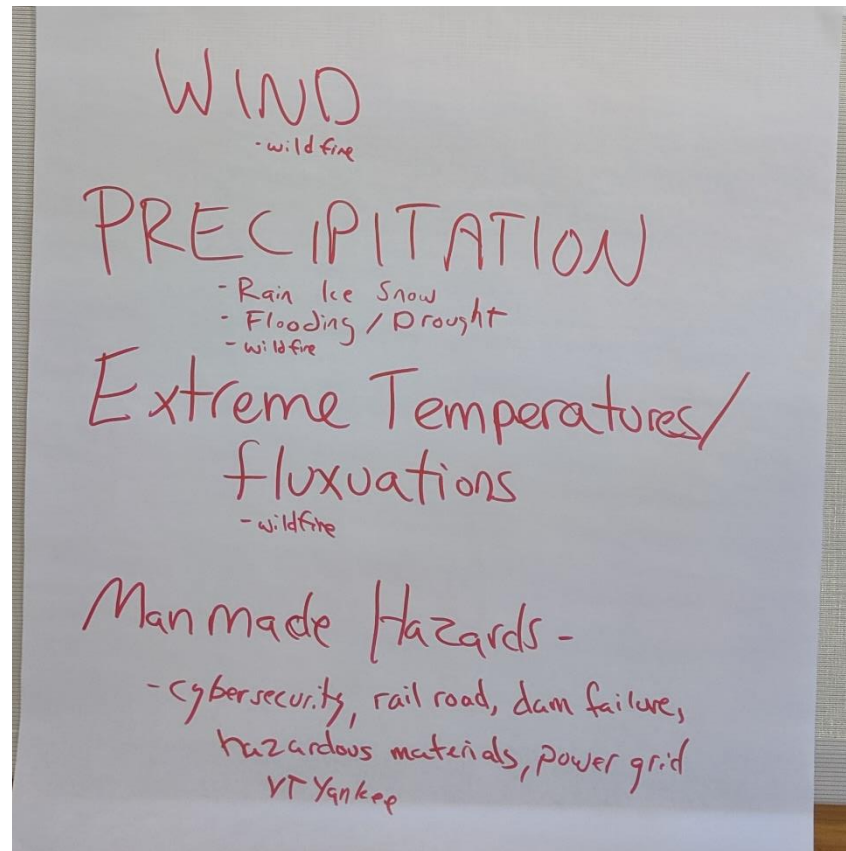 WIND
- wildfire
PRECIPITATION
- Rain Ice Snow
- Flooding / Drought
- wildfire
Extreme Temperatures/
fluxuations
- wildfire
Manmade Hazards -
- cybersecurity, rail road, dam failure,
hazardous materials, power grid
VT Yankee